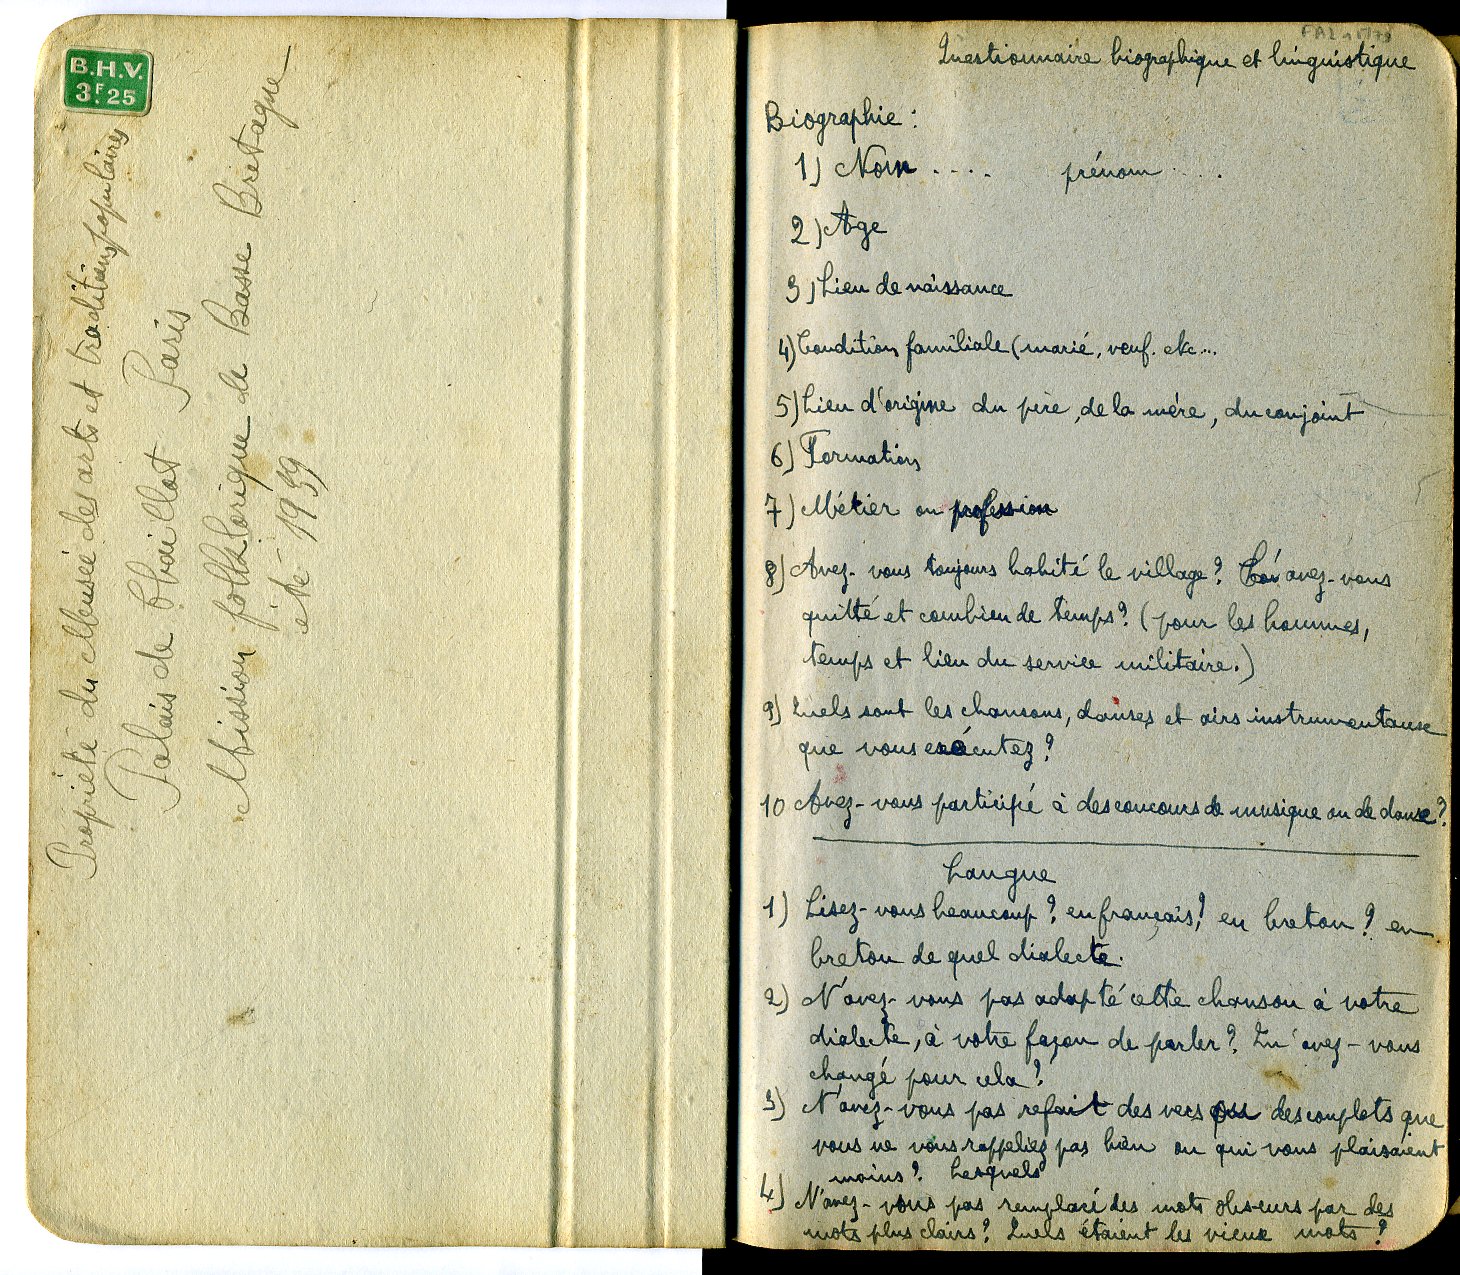 B.H.V.
3F.25
Propriété du Musée des arts et traditions populaires
Palais de Chaillot Paris
Mission folklorique de Basse Bretagne
été - 1939
Questionnaire biographique et linguistique
Biographie :
1) Nom .... prénom ....
2) Age
3) Lieu de naissance
4) Condition familiale (marié, veuf. etc...
5) Lieu d'origine du père, de la mère, du conjoint
6) Formation
7) Métier ou profession
8) Avez-vous toujours habité le village? avez-vous
quitté et combien de temps? (pour les hommes,
temps et lieu du service militaire.)
9) Quels sont les chansons, danses et airs instrumentaux
que vous exécutez?
10 Avez-vous participé à des concours de musique ou de danse?
Langue
1) Lisez-vous beaucoup? en français? en breton? en
breton de quel dialecte.
2) N'avez-vous pas adapté cette chanson à votre
dialecte, à votre façon de parler? Qu'avez-vous
changé pour cela?
3) N'avez-vous pas refait des vers ou des couplets que
vous ne vous rappeliez pas bien ou qui vous plaisaient
moins? Lesquels
4) N'avez-vous pas remplacé des mots obscurs par des
mots plus clairs? Quels étaient les vieux mots?